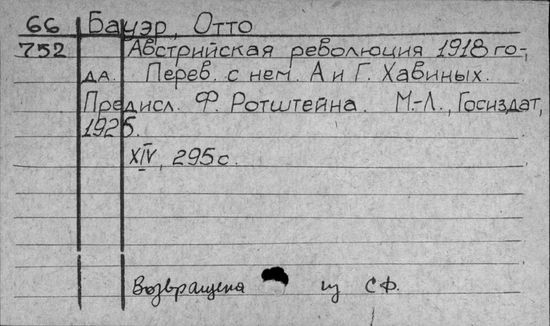 66 Бауэр, Отто
752 Австрийская революция 1918 го-
да. Перев. с нем. А и Г. Хавиных.
Предисл. Ф. Ротштейна. М.-Л., Госиздат,
1925.
XIV, 295 с.
Возвращена из СФ.